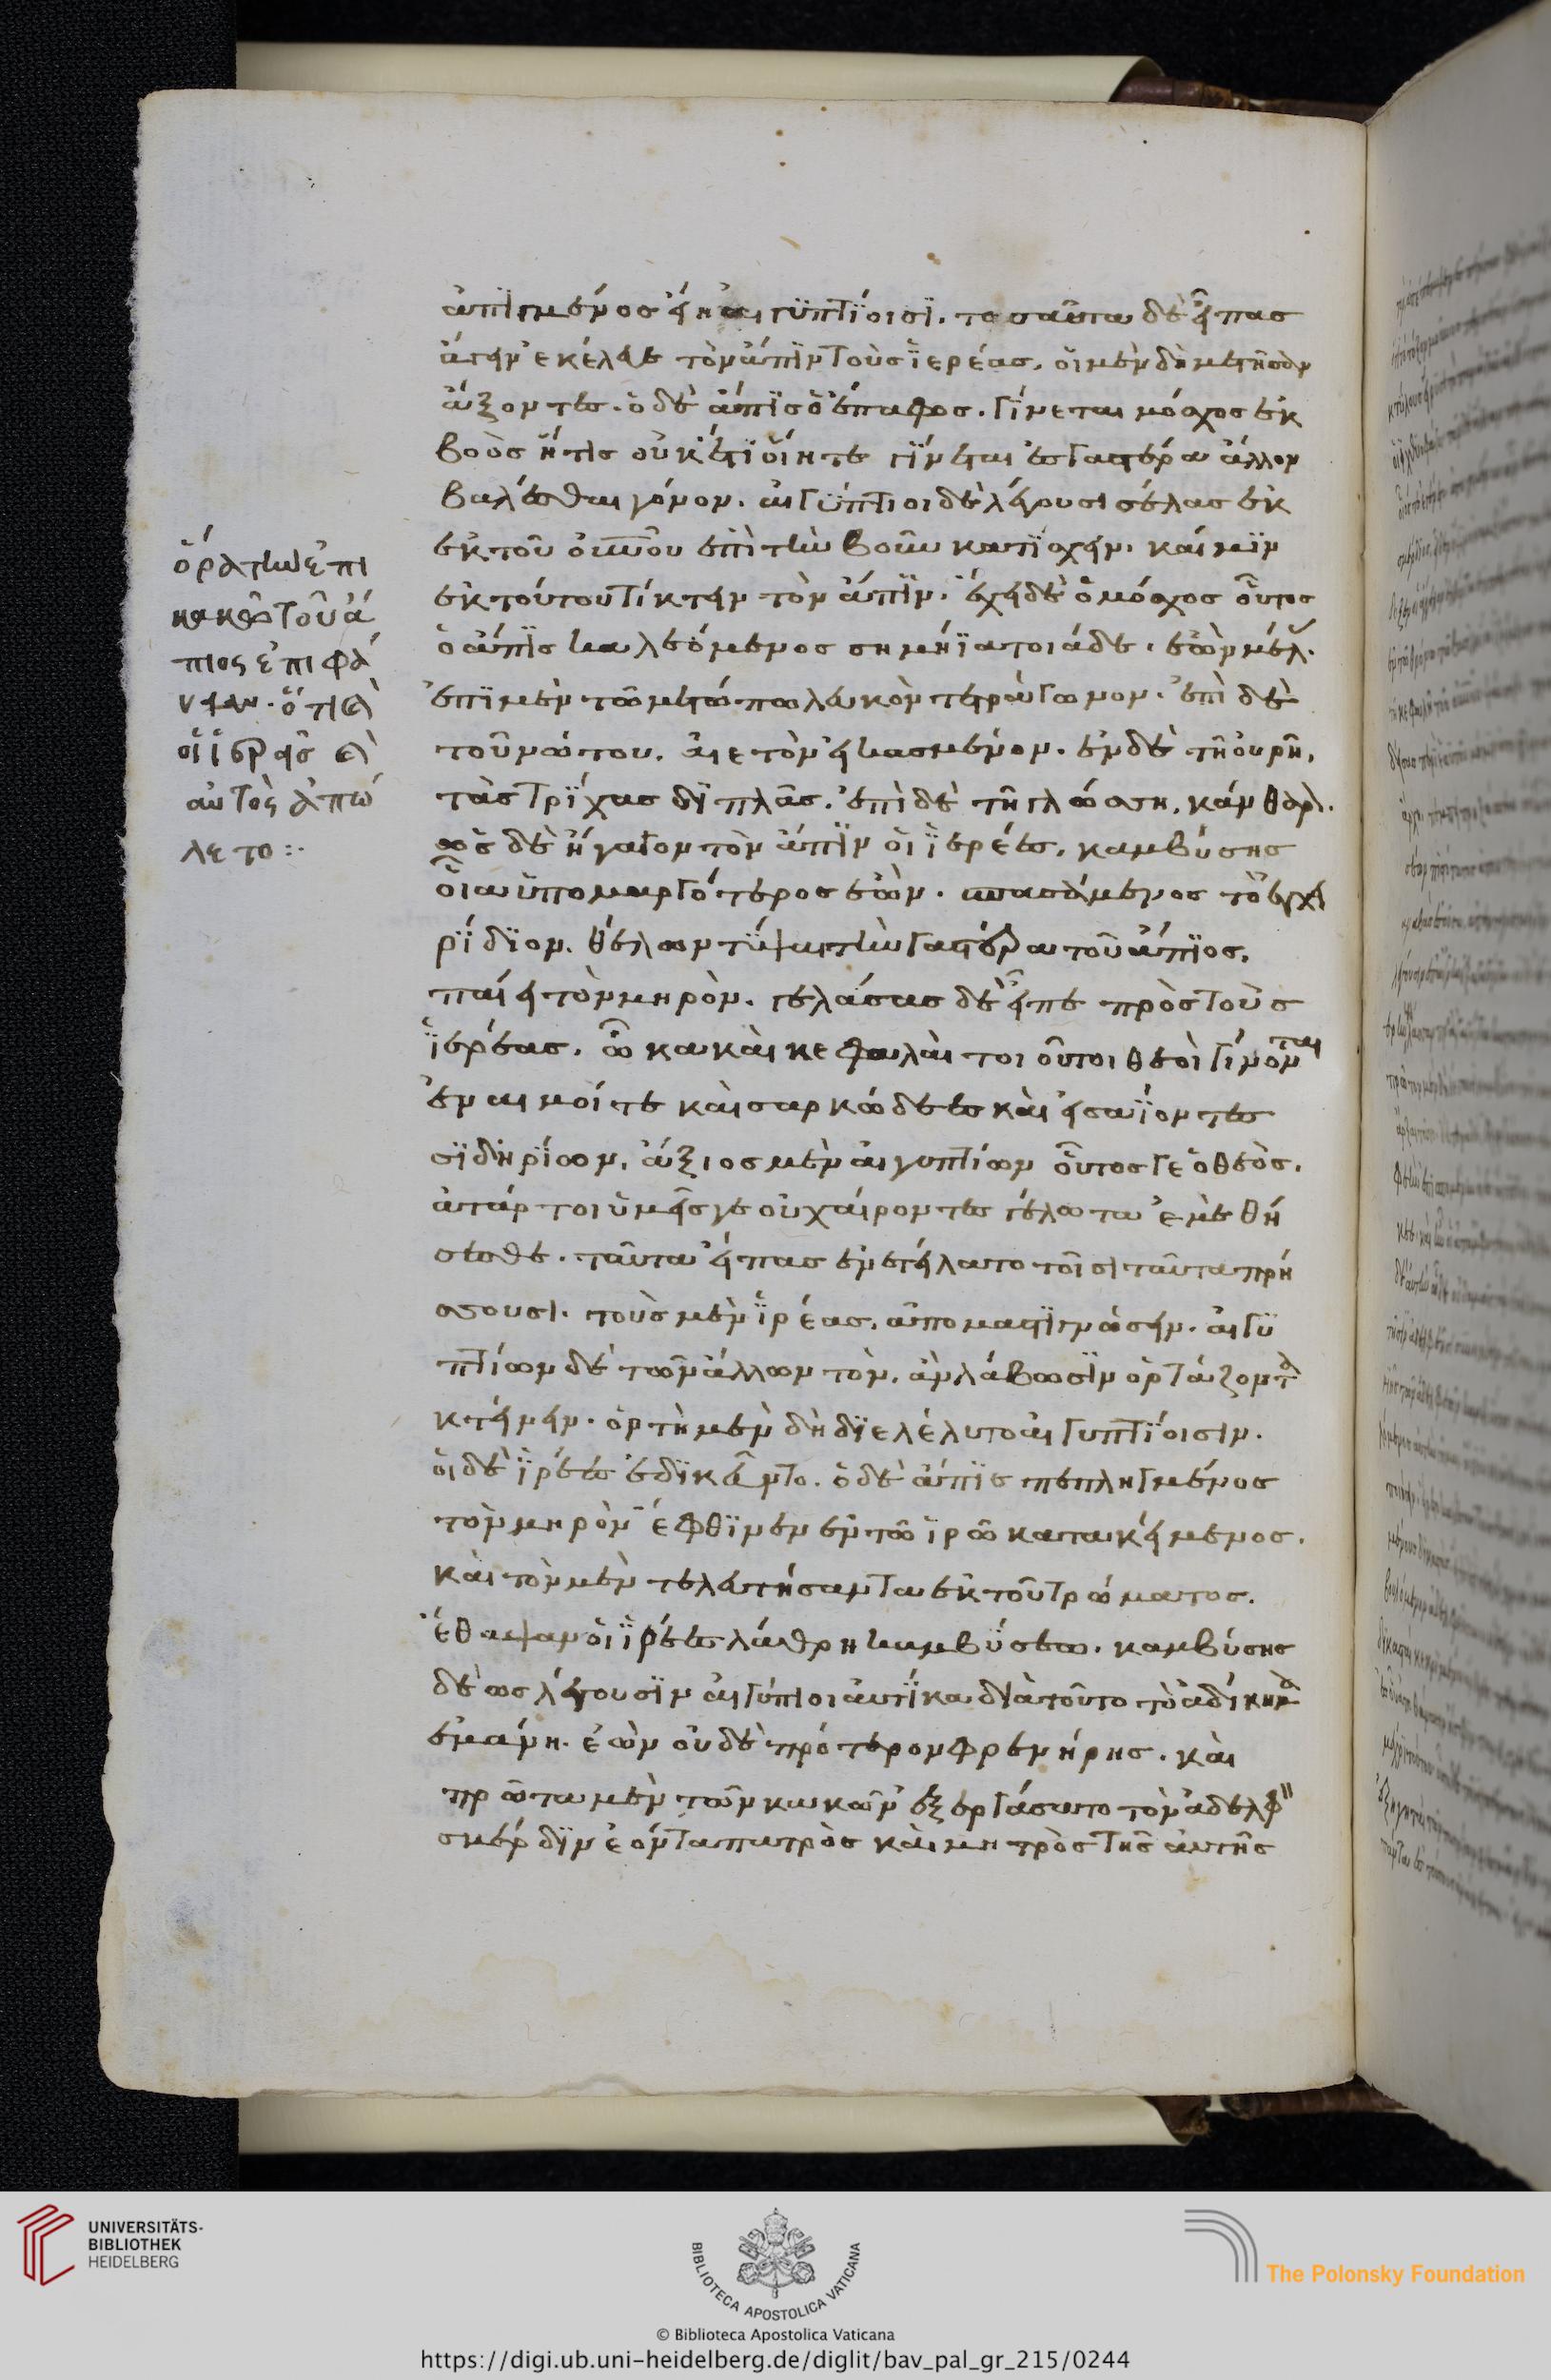 ἀπιγμένος εἴη αἰγυπτίοισι. τοσαῦτα δὲ εἶπας
ἄγειν ἐκέλευε τὸν ἄπιν τοὺς ἱερέας. οἱ μὲν δὴ μετῆσαν
ἄξοντες. ὁ δὲ ἄπις ὁ ἔπαφος. γίνεται μόσχος ἐκ
βοὸς ἥτις οὐκέτι οἵη τε γίνεται ἐς γαστέρα ἄλλον
βαλέσθαι γόνον. αἰγύπτιοι δὲ λέγουσι σέλας ἐκ
ἐκ τοῦ οὐνοῦ ἐπὶ τὴν βοῦν κατίσχειν. καί μιν
ἐκ τούτου τίκτειν τὸν ἄπιν. ἔχει δὲ ὁ μόσχος οὗτος
ὁ ἄπις καλεόμενος σημήϊα τοιάδε. ἐὼν μέλ.
ἐπὶ μὲν τῶ μετώπω λευκὸν τετράγωνον. ἐπὶ δὲ
τοῦ νώτου, αἰετὸν εἰκασμένον. ἐν δὲ τῆ οὐρῆ,
τὰς τρίχας διπλᾶς. ἐπὶ δὲ τῆ γλώσση, κάνθαρ.
ὡς δὲ ἤγαγον τὸν ἄπιν οἱ ἱερέες, καμβύσης
οἷα ὑπομαργότερος ἐών. σπασάμενος τὸ ἐγχει
ρίδιον. θέλων τύψαι τὴν γαστέρα τοῦ ἄπιος,
παίει τὸν μηρόν. γελάσας δὲ εἶπε πρὸς τοὺς
ἱερέας. ὦ κακαὶ κεφαλαὶ τοιοῦτοι θεοὶ γίνονται
ἔναιμοί τε καὶ σαρκώδεες καὶ ἐπαΐοντες
σιδηρίων. ἄξιος μὲν αἰγυπτίων οὗτος γε ὁ θεός.
ἀτάρ τοι ὑμεῖς γε οὐ χαίροντες γέλωτα ἐμὲ θή
σεσθε. ταῦτα εἴπας ἐνετείλατο τοῖσι ταῦτα πρή
σσουσι. τοὺς μὲν ἱρέας. ἀπομαστιγῶσειν. αἰγυ
πτίων δὲ τῶν ἄλλων τὸν. ἂν λάβωσιν ὁρτάζοντα
κτείνειν. ὁρτὴ μὲν δὴ διελέλυτο αἰγυπτίοισιν.
οἱ δὲ ἱρέες ἐδικεῦντο. ὁ δὲ ἄπις πεπληγμένος
τὸν μηρὸν ἔφθινεν ἐν τῶ ἱρῶ κατακείμενος.
καὶ τὸν μὲν τελευτήσαντα ἐκ τοῦ τρώματος.
ἔθαψαν οἱ ἱρέες λάθρη καμβύσεω. καμβύσης
δὲ ὡς λέγουσιν αἰγύπτιοι αὐτίκα διὰ τοῦτο τὸ ἀδίκημα
ἐμάνη. ἐὼν οὐδὲ πρότερον φρενήρης. καὶ
πρῶτα μὲν τῶν κακῶν ἐξεργάσατο τὸν ἀδελφ
σμέρδιν ἐόντα πατρὸς καὶ μητρὸς τῆς αὐτῆς
ὅρα τὴν ἐπι
κακῶ τοῦ ἄ
πιος ἐπιφά
νειαν. ὅτι καὶ
οἱ ἱερεῖς καὶ
αὐτὸς ἀπώ
λετο:.
UNIVERSITÄTS-
BIBLIOTHEK
HEIDELBERG
BIBLIOTECA APOSTOLICA VATICANA
The Polonsky Foundation
© Biblioteca Apostolica Vaticana
https://digi.ub.uni-heidelberg.de/diglit/bav_pal_gr_215/0244